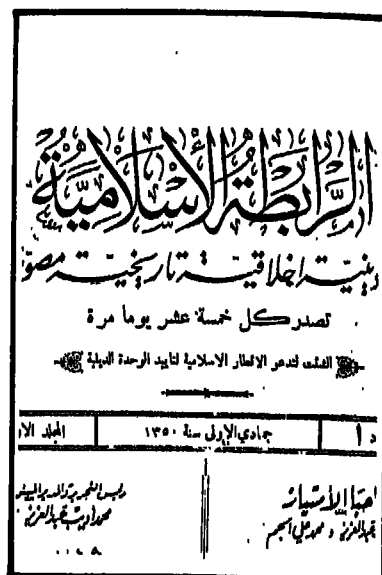 الرابطة الإسلامية
دينية اخلاقية تاريخية مصو
تصدر كل خمسة عشر يوما مرة
انشئت لتدعو الاقطار الاسلامية لتاييد الوحدة الدينية
د أ | جمادي الاولى سنة ١٣٥٠ | المجلد الاو
صاحبا الامتياز
عبد العزيز و محمد علي النجم
رئيس التحرير والمدير
محمد اديب عبد العزيز